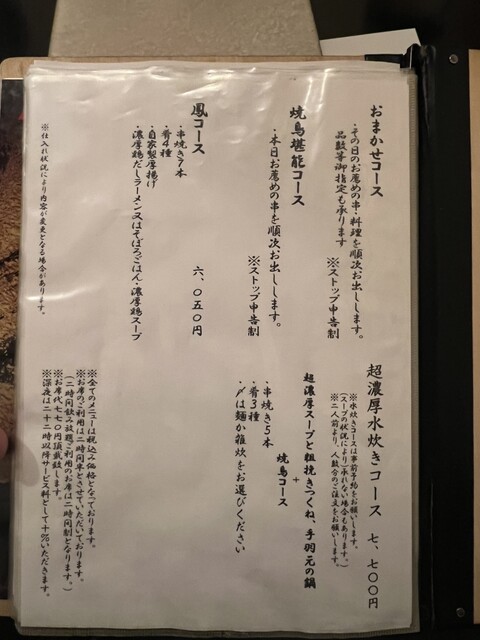 おまかせコース
・その日のお薦めの串・料理を順次お出しします。
品数等御指定も承ります
※ストップ申告制
焼鳥堪能コース
・本日お薦めの串を順次お出しします。
※ストップ申告制
鳳コース
・串焼き7本
・肴4種
・自家製厚揚げ
・濃厚鶏だしラーメン又はそぼろごはん・濃厚鶏スープ
六、〇五〇円
※仕入れ状況により内容が変更となる場合があります。
超濃厚水炊きコース 七、七〇〇円
※水炊きコースは事前予約をお願いします。
(スープの状況により承れない場合もあります。)
※二人前より、人数分のご注文をお願いします。
超濃厚スープと粗挽きつくね、手羽元の鍋
+
焼鳥コース
・串焼き5本
・肴3種
・〆は麺か雑炊をお選びください
※全てのメニューは税込み価格となっております。
※お席のご利用は二時間半とさせていただいております。
(二時間飲み放題ご利用のお席は二時間制となります。)
※お席代七七〇円頂戴致します。
※深夜は二十二時以降サービス料として十%いただきます。